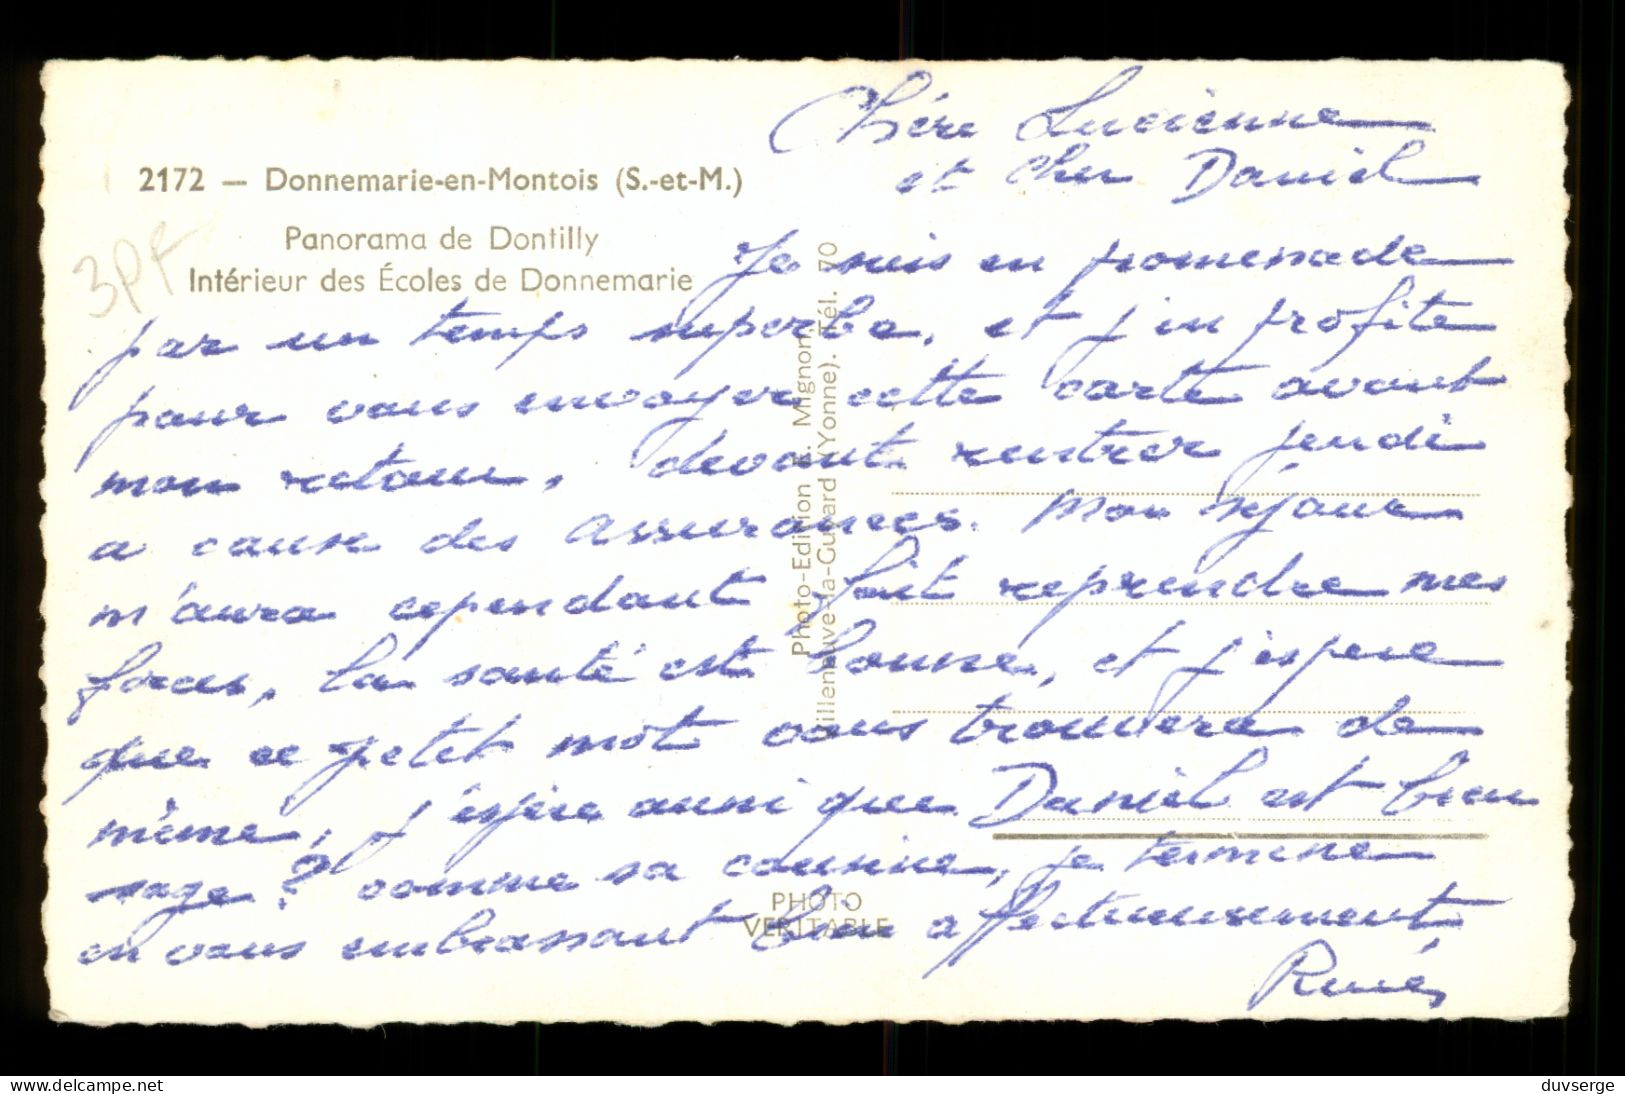 2172 — Donnemarie-en-Montois (S.-et-M.)
Panorama de Dontilly
Intérieur des Écoles de Donnemarie
3PF
Chère Lucienne
et cher Daniel
Je suis en promenade
par un temps superbe, et j'en profite
pour vous envoyer cette carte avant
mon retour, devant rentrer jeudi
a cause des assurances. Mon séjour
m'aura cependant fait reprendre mes
forces, la santé est bonne, et j'espere
que ce petit mot vous trouvera de
même, j'espère aussi que Daniel est bien
sage? comme sa cousine, je termine
en vous embrassant bien affectueusement
René
Photo-Edition E. Mignon
Villeneuve-la-Guyard (Yonne). Tél. 70
PHOTO
VERITABLE
delcampe.net
duvserge